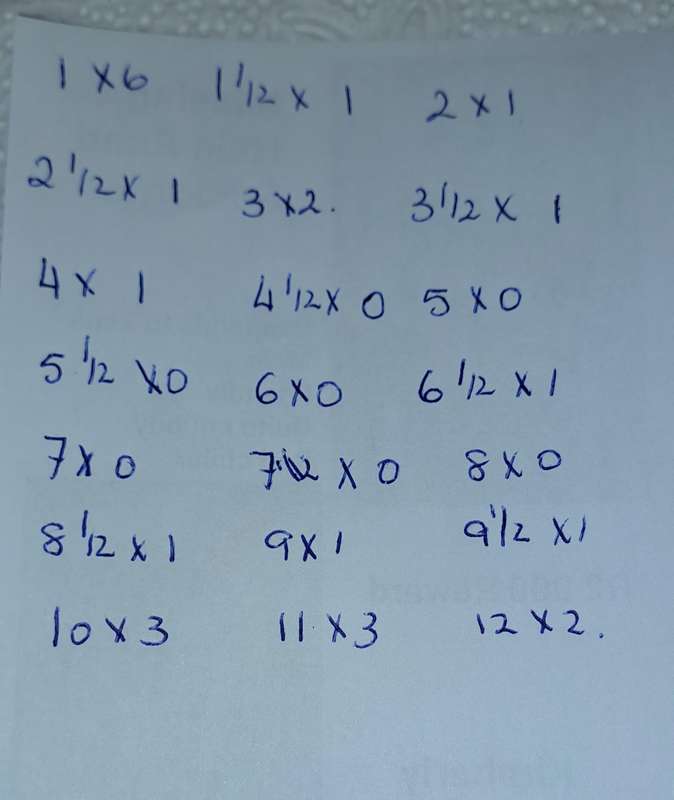 1 x 6 1 1/2 x 1 2 x 1
2 1/2 x 1 3 x 2. 3 1/2 x 1
4 x 1 4 1/2 x 0 5 x 0
5 1/2 x 0 6 x 0 6 1/2 x 1
7 x 0 7 1/2 x 0 8 x 0
8 1/2 x 1 9 x 1 9 1/2 x 1
10 x 3 11 x 3 12 x 2.